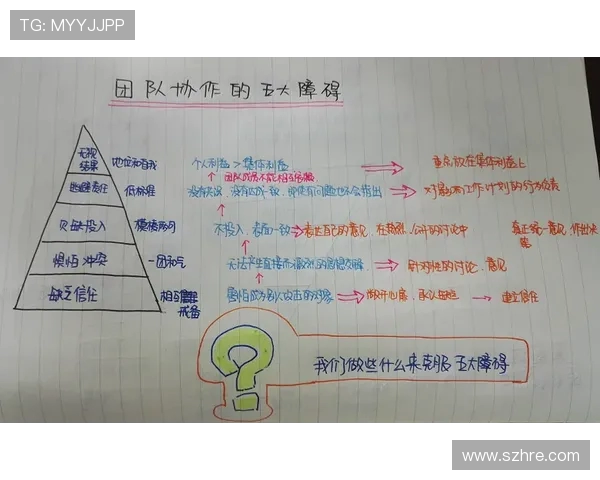 TG: MYYJJPP
团队协作的五大障碍
无视结果 地位和自我 个人利益 > 集体利益 重点放在集体利益上
团队成员不能相互
逃避责任 低标准 没有达成一致，即使有问题也不会指出 对影响工作计划的行为负责
欠缺投入 模棱两可 不投入，表面一致 表达自己的意见，在 公开的讨论中 真正统一意见，作出决定
惧怕冲突 一团和气 无法产生直接而激烈的思想交锋 针对性的讨论、意见
缺乏信任 相互戒备 害怕成为别人攻击的对象 敞开心扉，承认 建立信任
我们做些什么来克服五大障碍
www.szhre.com